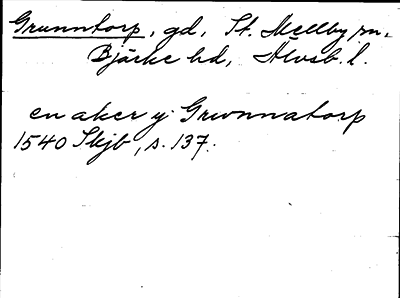 Grunntorp, gd, St. Mellby sn,
Bjärke hd, Älvsb. l.
en aker y Grwnnatorp
1540 Skjb, s. 137.